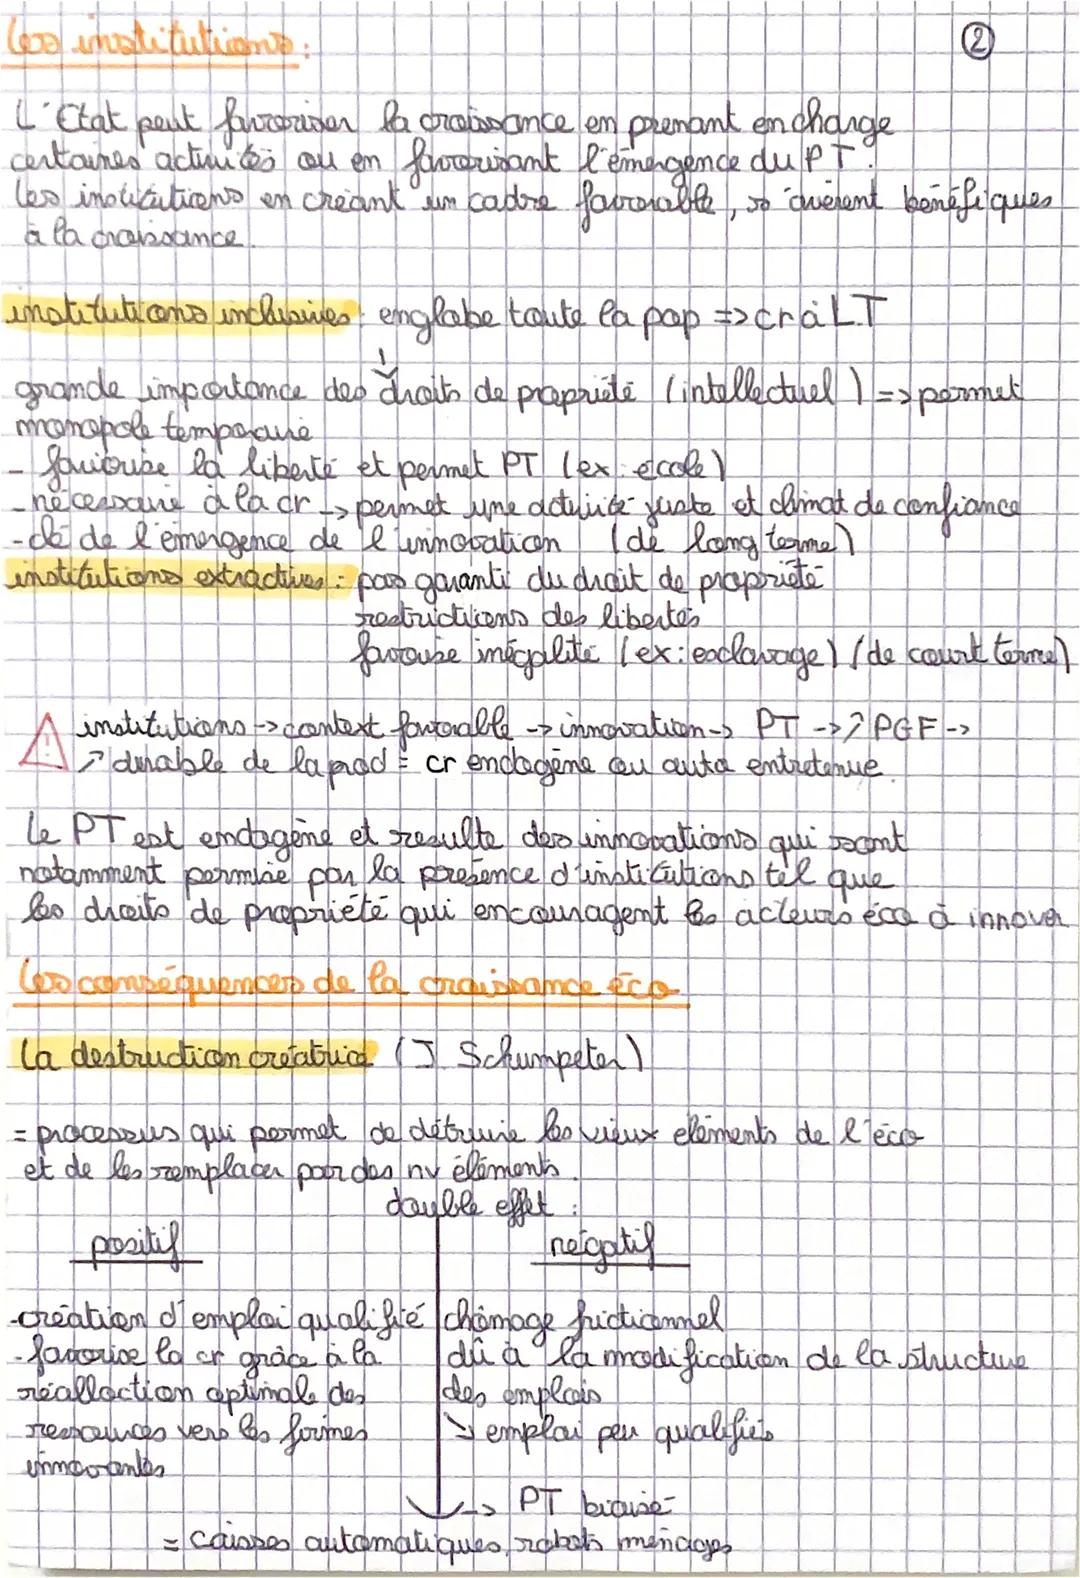 Les institutions :
②
L'Etat peut favoriser la croissance en prenant en charge
certaines activités ou en favorisant l'émergence du PT.
Les institutions en créant un cadre favorable, s'avèrent bénéfiques
à la croissance.
institutions inclusives : englobe toute la pop => cr à LT
grande importance des droits de propriété (intellectuel) => permet
monopole temporaire
- favorise la liberté et permet PT (ex : école)
- nécessaire à la cr -> permet une activité juste et climat de confiance
- clé de l'émergence de l'innovation (de long terme)
institutions extractives : pas garanti du droit de propriété
restrictions des libertés
favorise inégalité (ex : esclavage) (de court terme)
! institutions -> context favorable -> innovation -> PT -> ↗ PGF ->
↗ durable de la prod = cr endogène ou auto entretenue
Le PT est endogène et resulte des innovations qui sont
notamment permise par la présence d'institutions tel que
les droits de propriété qui encouragent les acteurs éco à innover
Les conséquences de la croissance éco
La destruction créatrice (J. Schumpeter)
= processus qui permet de détruire les vieux eléments de l'éco
et de les remplacer par des nv éléments.
double effet :
positif
négatif
- création d'emploi qualifié
- favorise la cr grâce à la
réallaction optimale des
ressources vers les firmes
innovantes
chômage frictionnel
dû à la modification de la structure
des emplois
↘ emploi peu qualifiés
-> PT biaisé
= caisses automatiques, robots ménages